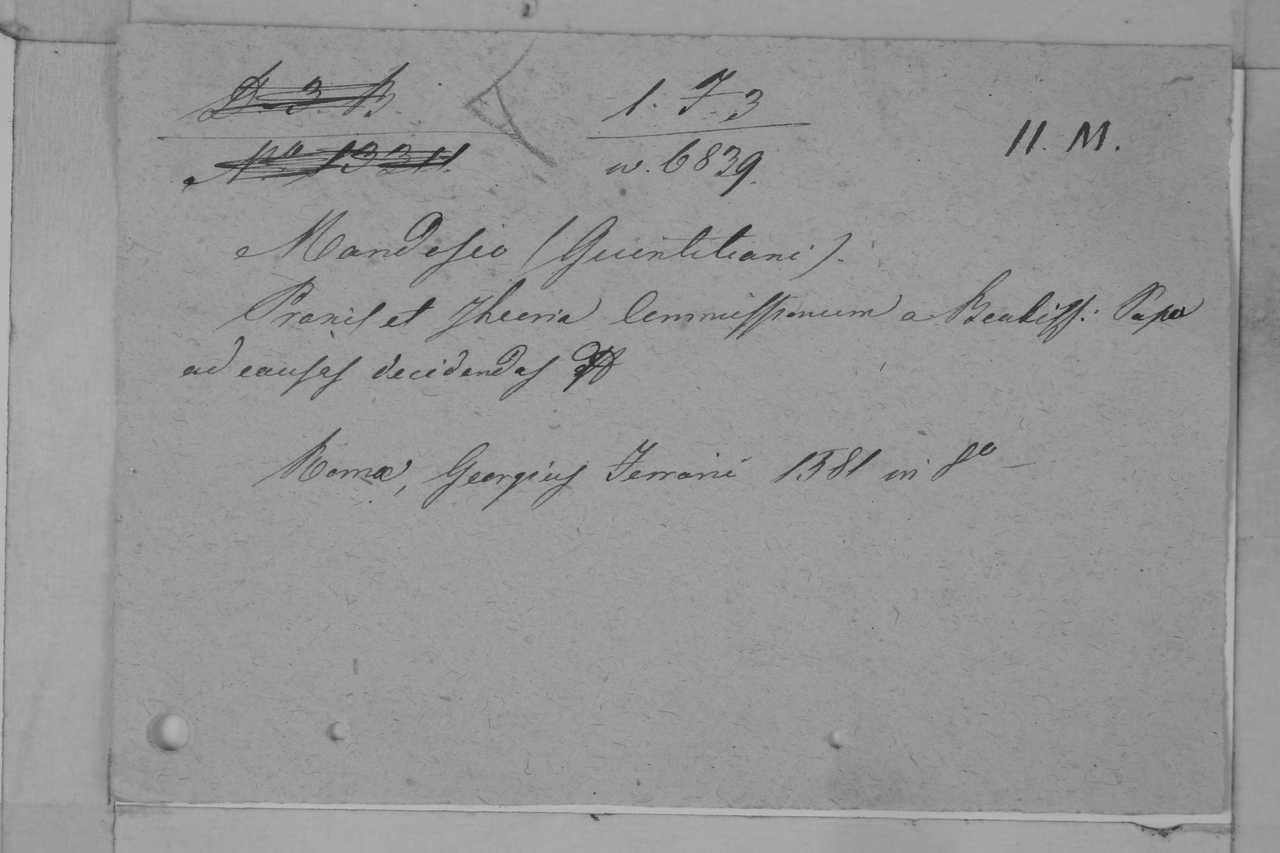 D. 3. B. 1. F. 3 11. M.
Nº 13311. w. 6839.
Mandosio (Quintiliani).
Praxis et Theoria Commissionum a Beatiss: Papa
ad causas decidendas
Romæ, Georgius Ferrarii 1581 in 8º